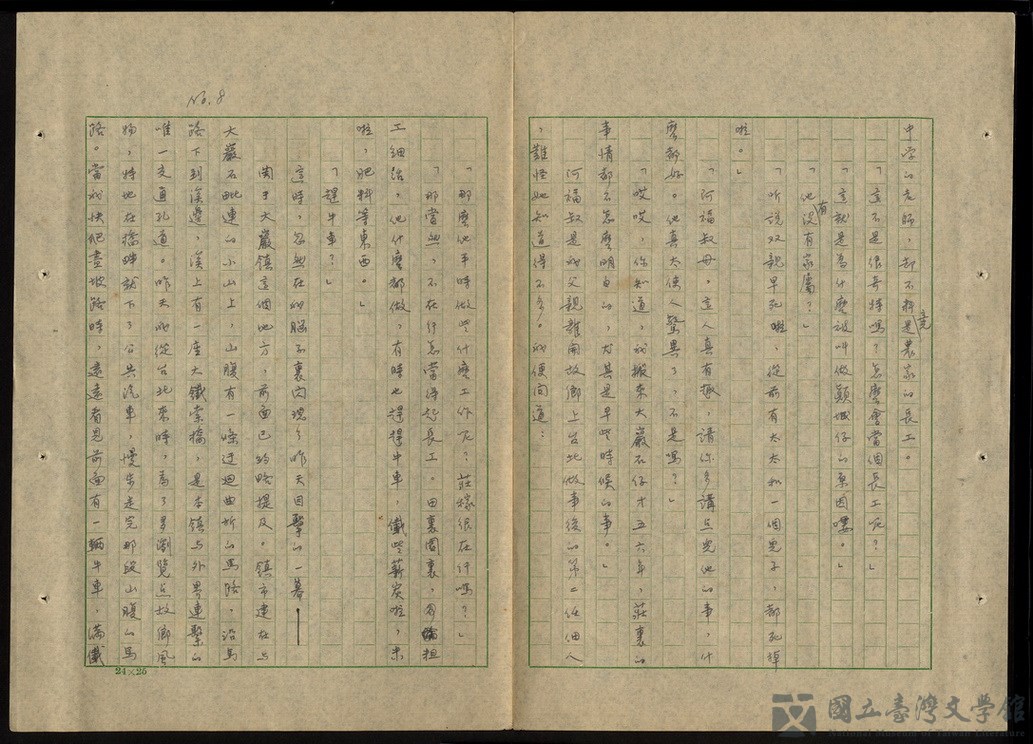 中学的老師，却不料竟是農家的長工。
「這不是很奇特嗎？怎麼會當個長工呢？」
「這就是為什麼被叫做顛城仔的原因嘍。」
「他没有家属？」
「听説双親早死啦，從前有太太和一個兒子，都死掉
啦。」
「阿福叔母，這人真有趣，請你多講点兒他的事，什
麼都好。他真太使人驚異了，不是嗎？」
「哎哎，你知道，我搬來大巖石仔才五六年，莊裏的
事情都不怎麼明白的，尤其是早些時候的事。」
阿福叔是我父親離開故鄉上台北做事後的第二任佃人
，難怪她知道得不多。我便問道：
No. 8
「那麼他平時做些什麼工作呢？莊稼很在行嗎？」
「那當然，不在行怎當得起長工。田裏園裏，粗
工細活，他什麼都做，有時也趕趕牛車，儎些薪炭啦，米
啦，肥料等東西。」
「趕牛車？」
這時，忽然在我腦子裏閃現了昨天目擊的一幕——
関于大巖鎮這個地方，前面已約略提及。鎮市建在与
大巖石毗連的小山上，山腹有一條迂迴曲折的馬路，沿馬
路下到溪邊，溪上有一座大鐵索橋，是本鎮与外界連繫的
唯一交通孔道。昨天我從台北來時，為了多瀏覽点故鄉風
物，特地在橋畔就下了公共汽車，慢步走完那段山腹的馬
路。當我快爬盡坡路時，遠遠看見前面有一輛牛車，滿儎
24×25
國立臺灣文學館
National Museum of Taiwan Literature